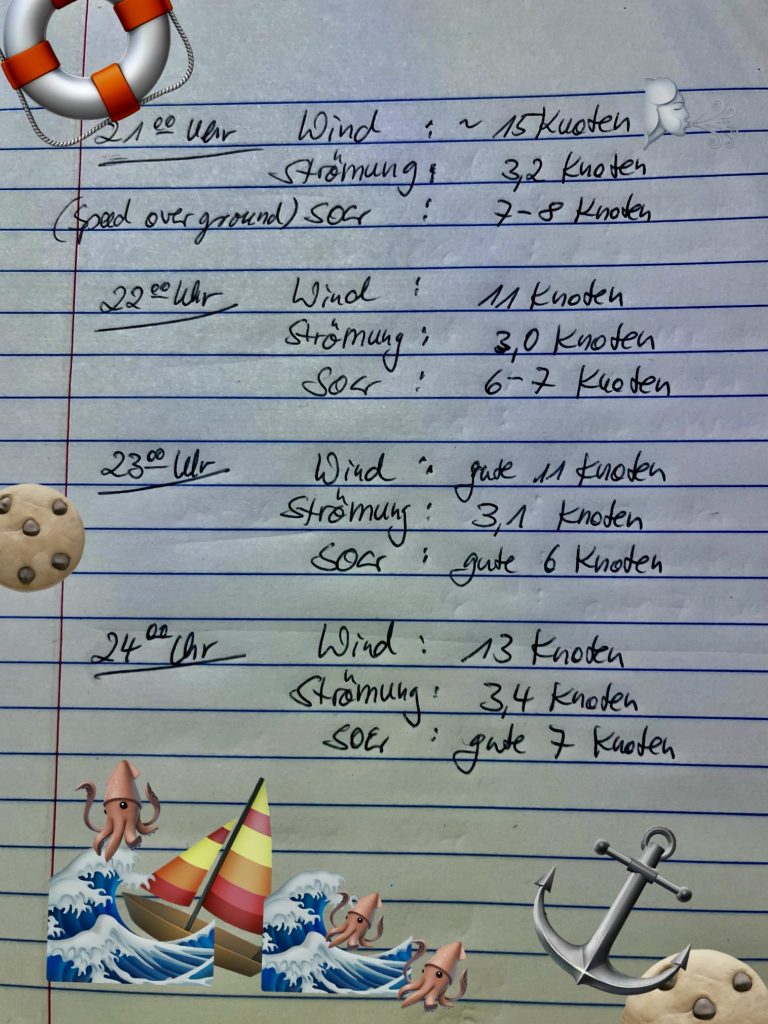 21⁰⁰ Uhr Wind : ~ 15 Knoten
Strömung : 3,2 Knoten
(Speed over ground) SOG : 7-8 Knoten
22⁰⁰ Uhr Wind : 11 Knoten
Strömung : 3,0 Knoten
SOG : 6-7 Knoten
23⁰⁰ Uhr Wind : gute 11 Knoten
Strömung : 3,1 Knoten
SOG : gute 6 Knoten
24⁰⁰ Uhr Wind : 13 Knoten
Strömung : 3,4 Knoten
SOG : gute 7 Knoten